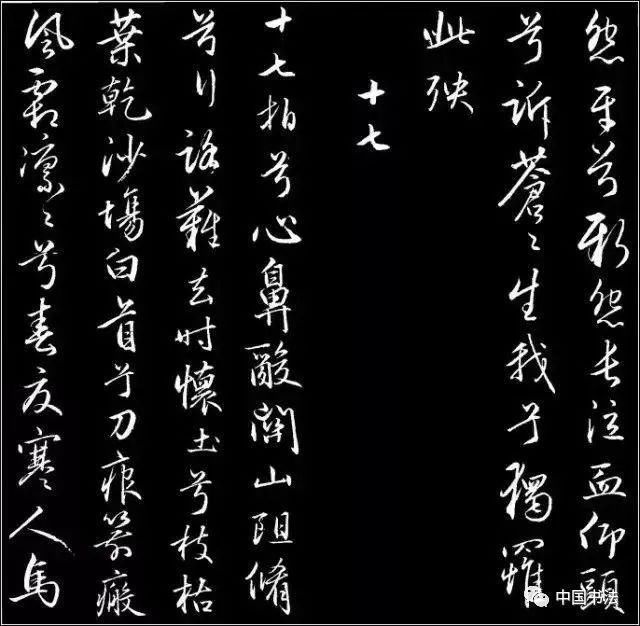 怨平兮新怨長泣血仰頭
兮訴蒼〻生我兮獨罹
此殃
十七
十七拍兮心鼻酸關山阻脩
兮行路難去時懷土兮枝枯
葉乾沙場白首兮刀痕箭瘢
風霜凜〻兮春夏寒人馬
中国书法